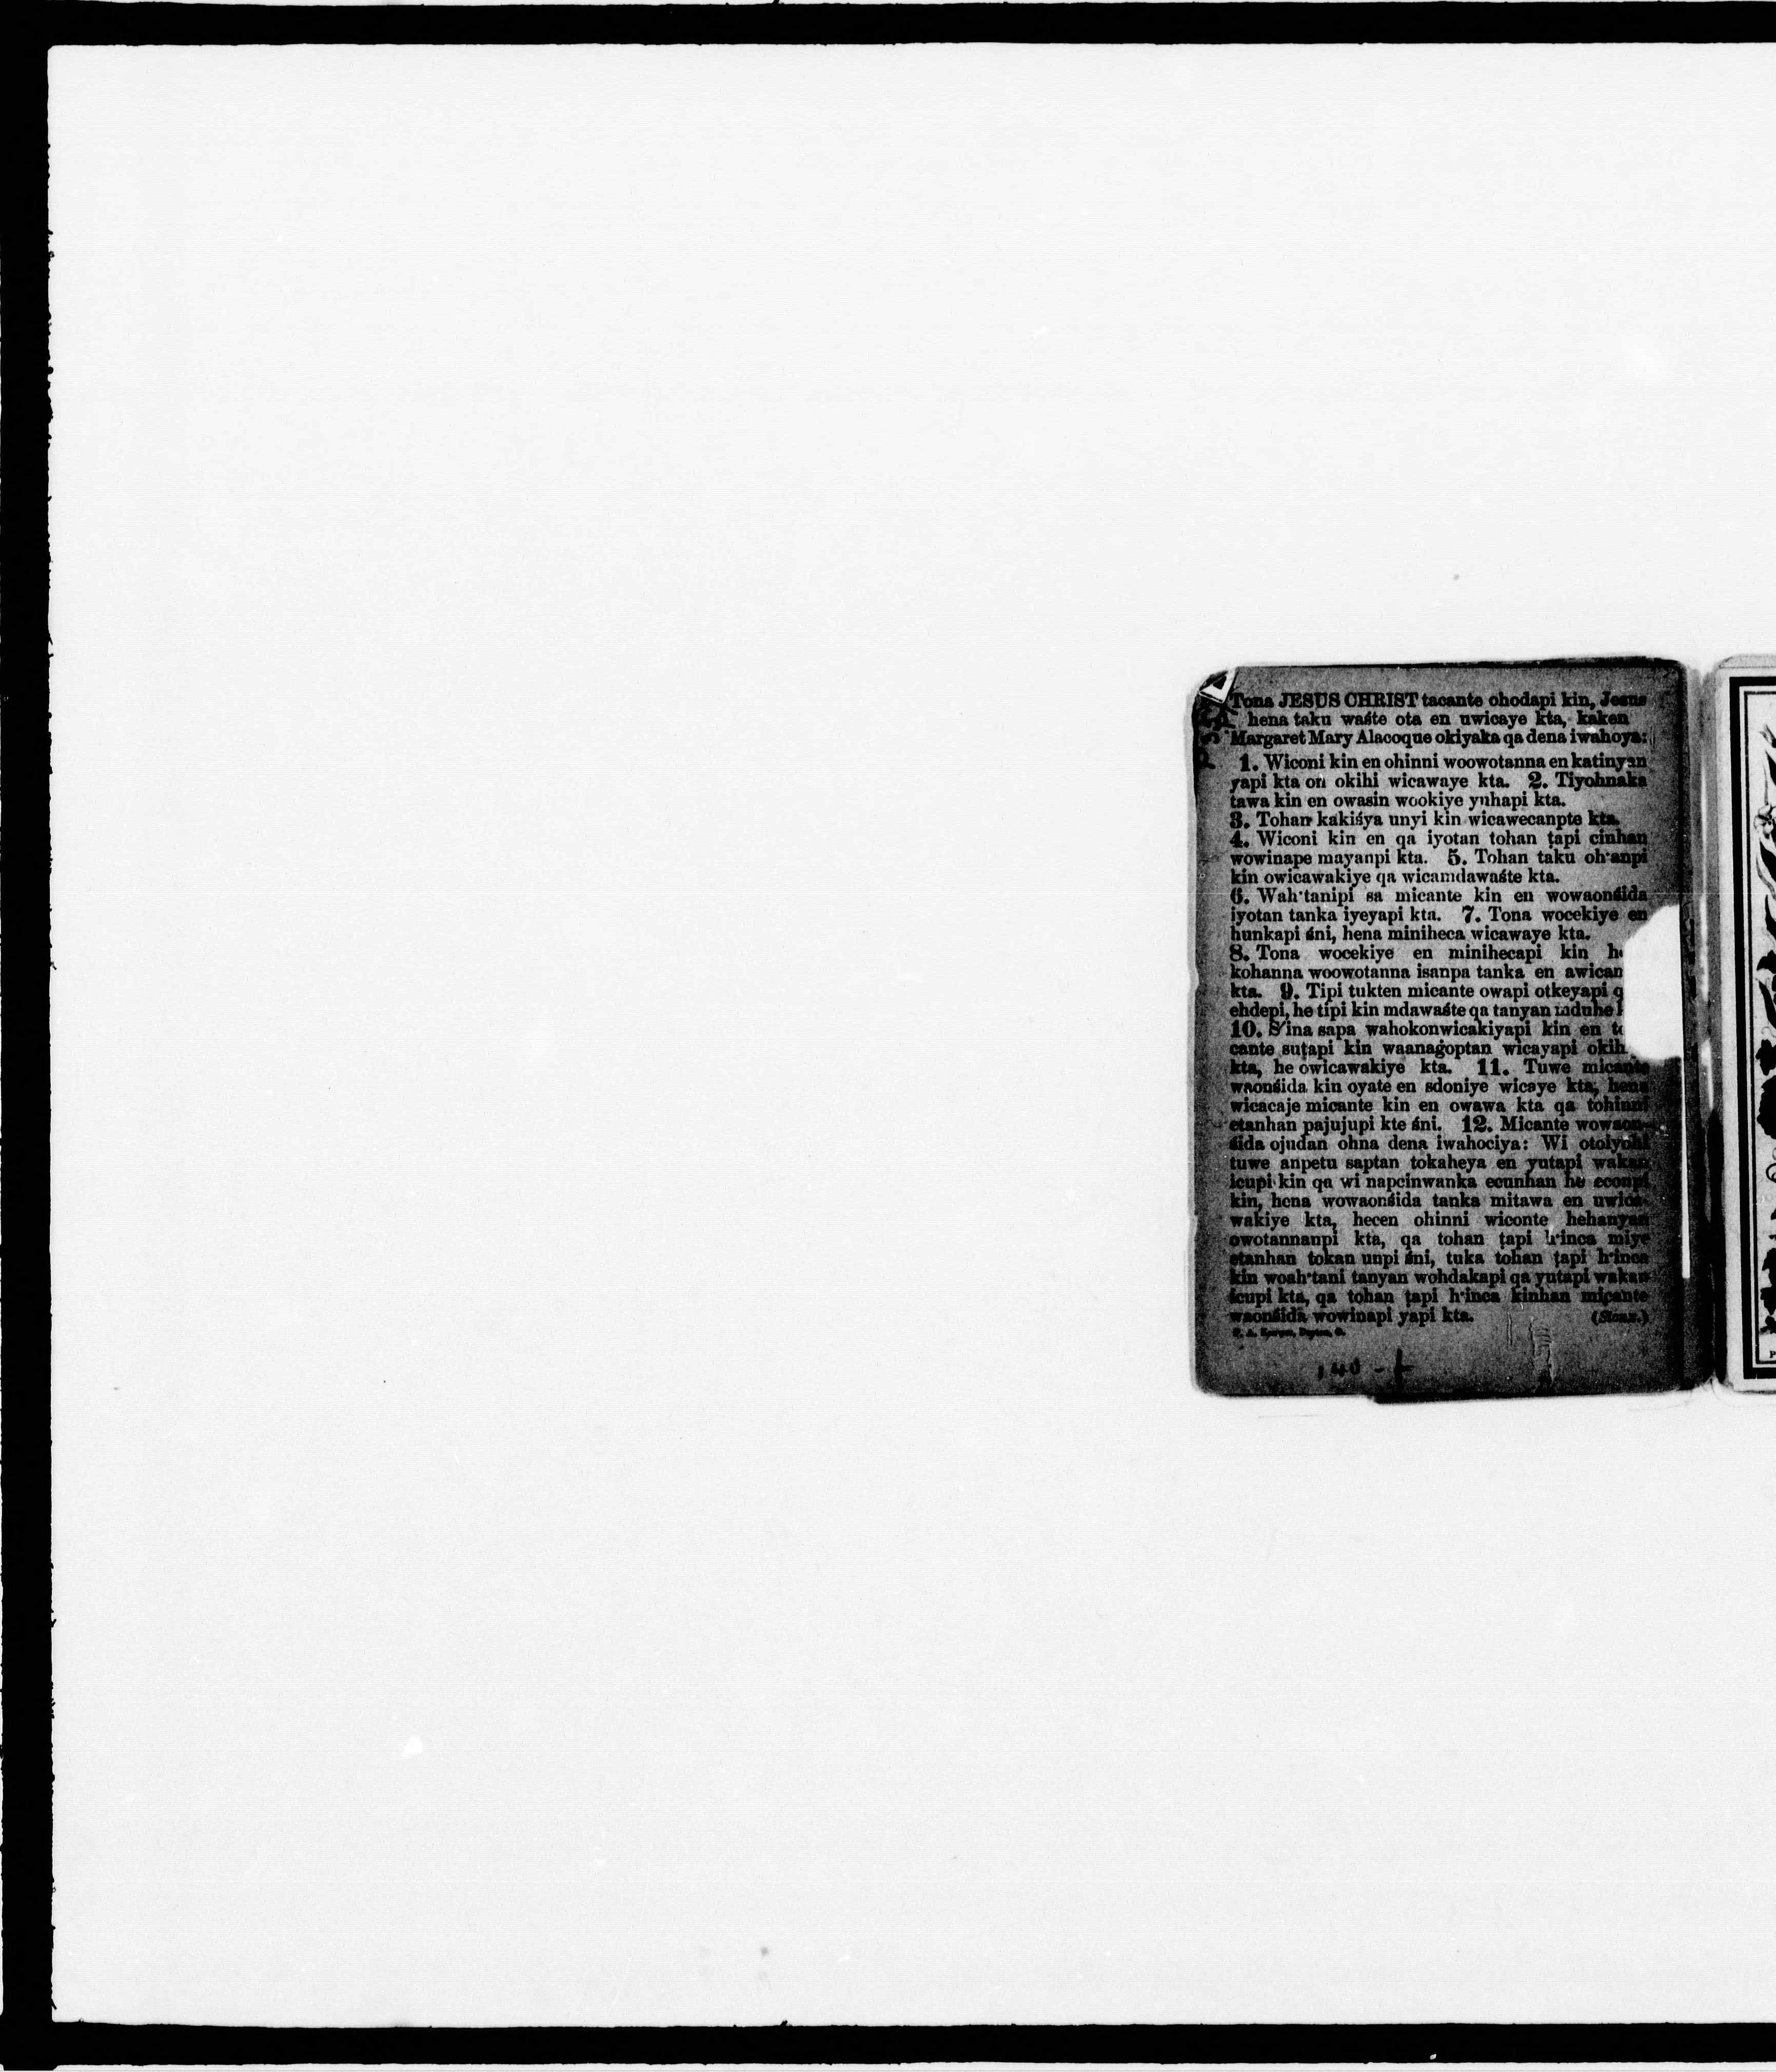 Tona JESUS CHRIST tacante ohodapi kin, Jesus
hena taku waśte ota en uwicaye kta, kaken
Margaret Mary Alacoque okiyaka qa dena iwahoya:
1. Wiconi kin en ohinni woowotanna en katinyan
yapi kta on okihi wicawaye kta. 2. Tiyohnaka
tawa kin en owasin wookiye yuhapi kta.
3. Tohan kakiśya unyi kin wicawecanpte kta.
4. Wiconi kin en qa iyotan tohan ṭapi cinhan
wowinape mayanpi kta. 5. Tohan taku oh'anpi
kin owicawakiye qa wicamdawaśte kta.
6. Wah'tanipi sa micante kin en wowaonśida
iyotan tanka iyeyapi kta. 7. Tona wocekiye en
hunkapi śni, hena miniheca wicawaye kta.
8. Tona wocekiye en minihecapi kin
kohanna woowotanna isanpa tanka en
kta. 9. Tipi tukten micante owapi otkeyapi
ehdepi, he tipi kin mdawaśte qa tanyan mduhe
10. S'ina sapa wahokonwicakiyapi kin en
cante suṭapi kin waanaġoptan wicayapi
kta, he owicawakiye kta. 11. Tuwe micante
waonśida kin oyate en sdoniye wicaye kta, hena
wicacaje micante kin en owawa kta qa tohinni
etanhan pajujupi kte śni. 12. Micante wowaon-
śida ojudan ohna dena iwahociya: Wi otoiyohi
tuwe anpetu saptan tokaheya en yutapi wakan
icupi kin qa wi napcinwanka ecunhan he econpi
kin, hena wowaonśida tanka mitawa en uwica-
wakiye kta, hecen ohinni wiconte hehanyan
owotannanpi kta, qa tohan ṭapi h'inca miye
etanhan tokan unpi śni, tuka tohan ṭapi h'inca
kin woah'tani tanyan wohdakapi qa yutapi wakan
icupi kta, qa tohan ṭapi h'inca kinhan micante
waonśida wowinapi yapi kta. (Sioux.)
140 -